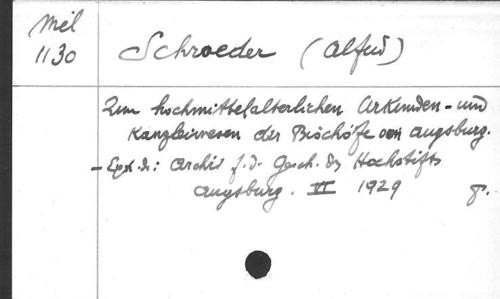 Mél
1130
Schroeder (Alfred)
Zum hochmittelalterlichen Urkunden- und
Kanzleiwesen der Bischöfe von Augsburg.
- Ext. de: Archiv f. d. Gesch. des Hochstifts
Augsburg. VI 1929